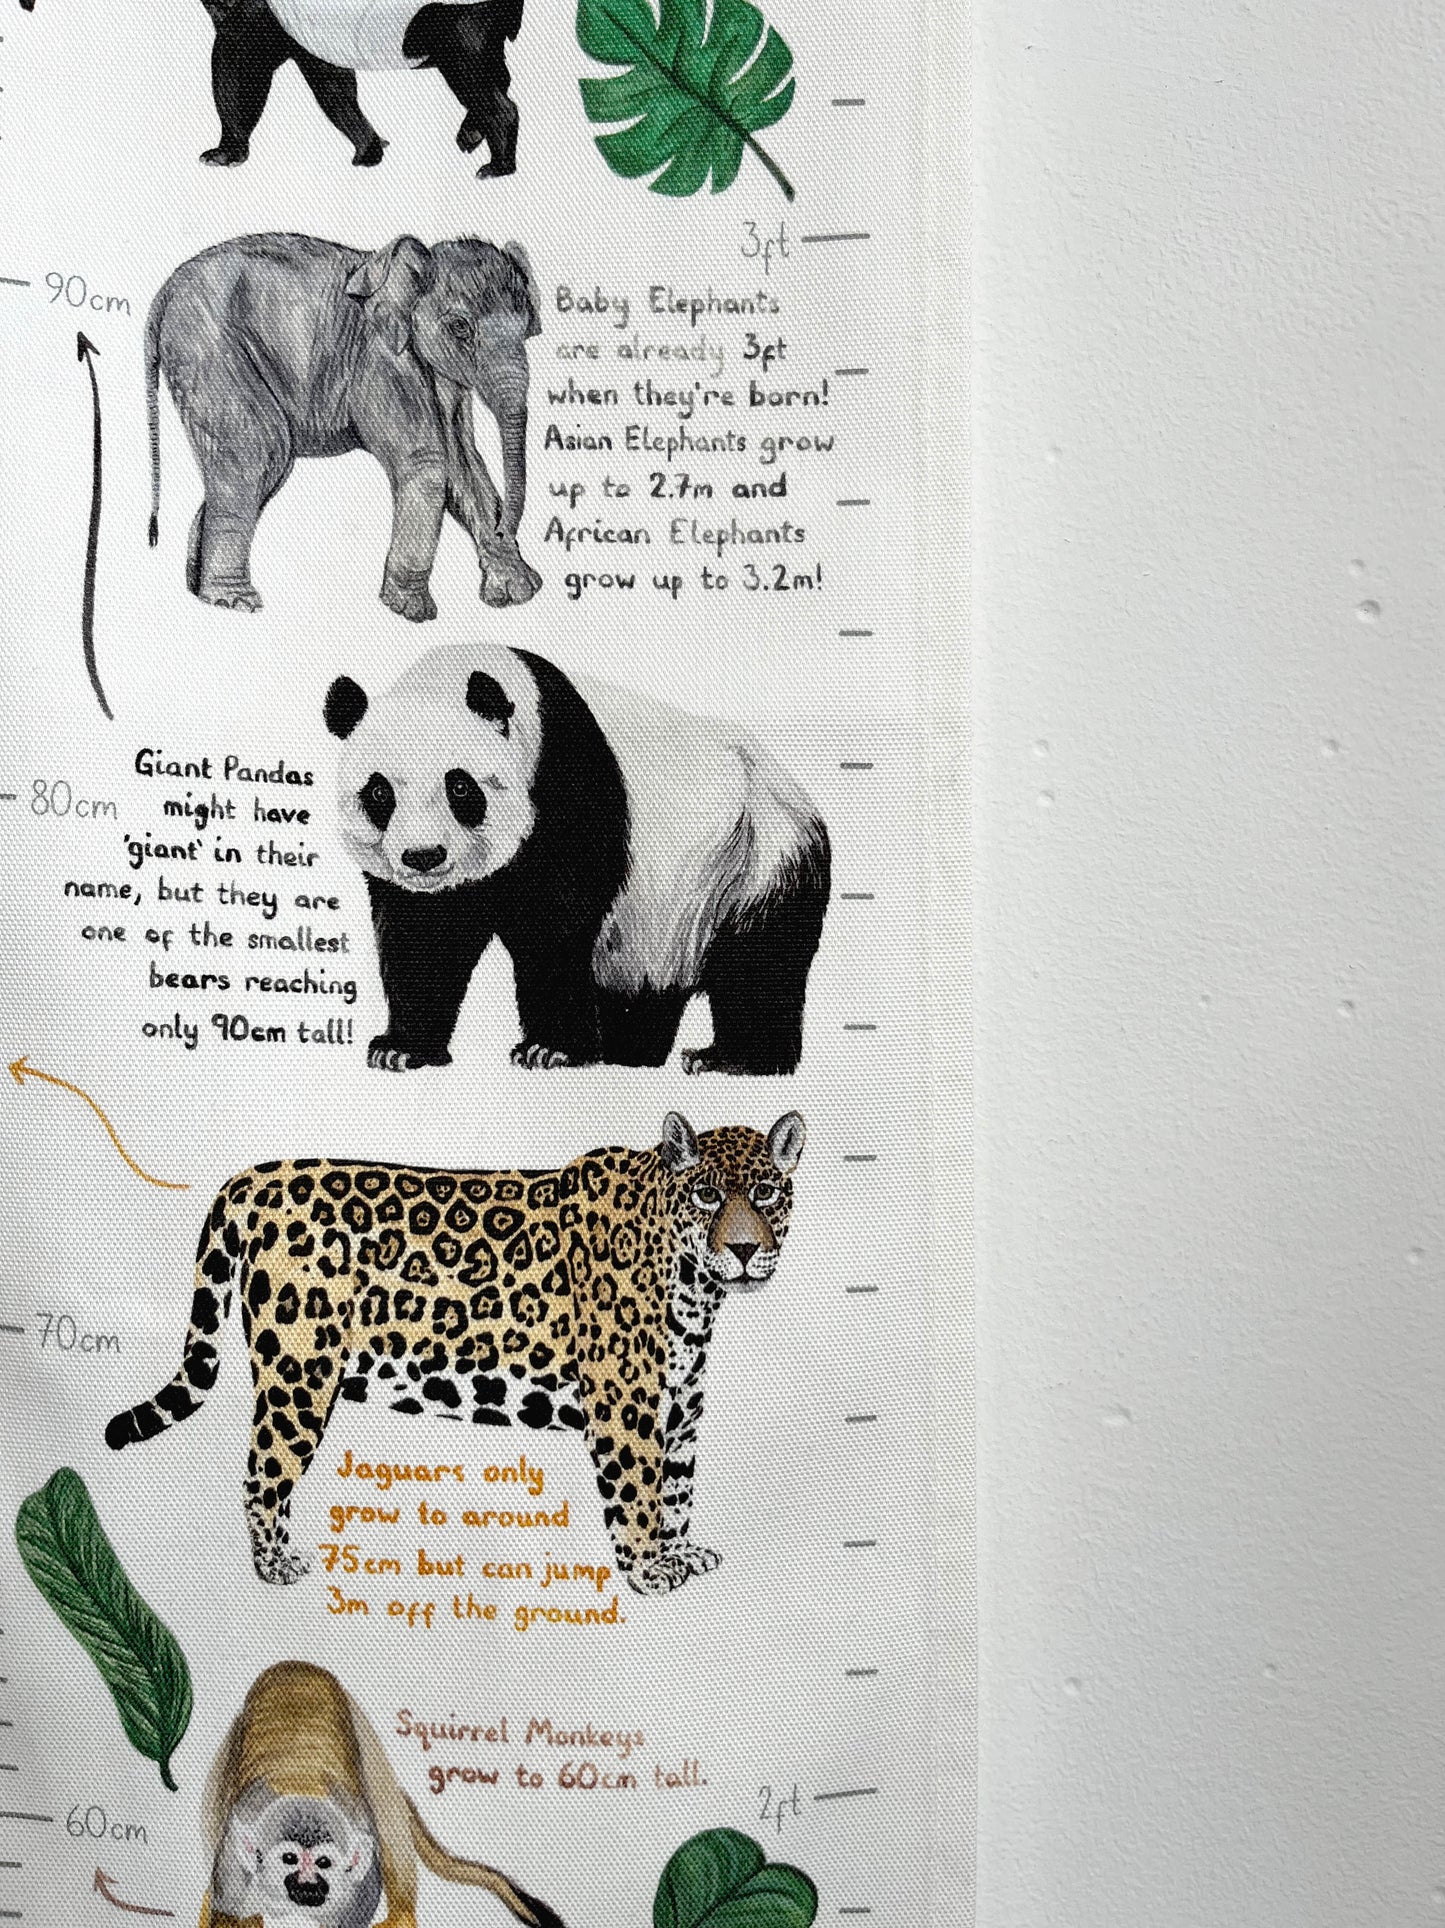 3ft
90cm
Baby Elephants
are already 3ft
when they're born!
Asian Elephants grow
up to 2.7m and
African Elephants
grow up to 3.2m!
Giant Pandas
might have
'giant' in their
name, but they are
one of the smallest
bears reaching
only 90cm tall!
80cm
70cm
Jaguars only
grow to around
75cm but can jump
3m off the ground.
Squirrel Monkeys
grow to 60cm tall.
2ft
60cm